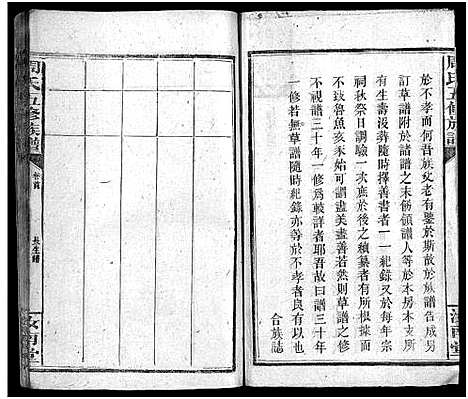 周氏五修族譜
汝南堂
於不孝而何吾族父老有鑒於斯故於族譜告成另
訂草譜附於諸譜之末飭領譜人等於本房本支
有生壽没葬隨時擇善書者一一紀錄又於每年宗
祠秋祭日調驗一次庶於後之續纂者有所根據而
不致魯魚亥豕始可謂盡美盡善若然則草譜之修
不視譜二十年一修為較詳耶吾故曰譜三十年
一修若撫草譜隨時紀錄亦等於不孝不孝
合族誌
周氏五修族譜
卷首
長生譜
汝南堂